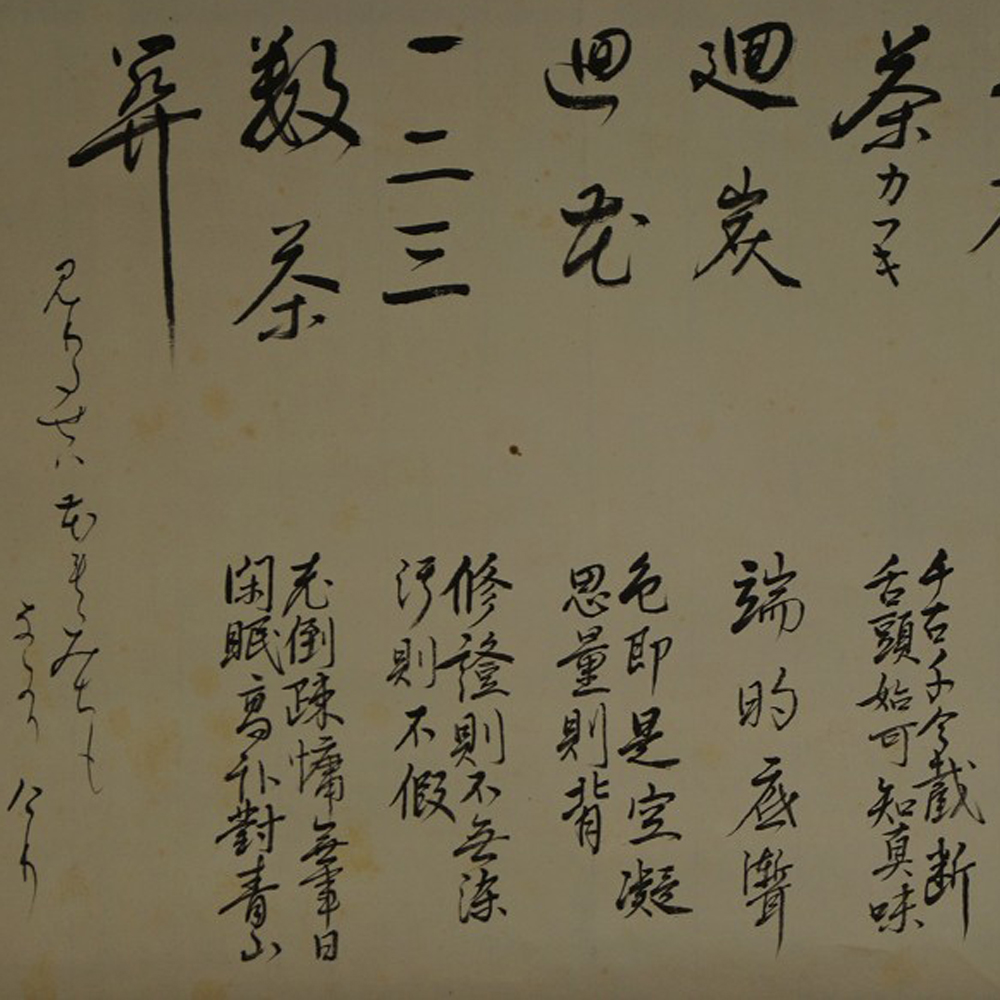 茶カフキ
千古千今截断
舌頭始可知真味
廻炭
端的底聻
廻花
色即是空凝
思量則背
一二三
修證則不無染
汚則不假
数茶
老倒疎慵無事日
閑眠高臥對青山